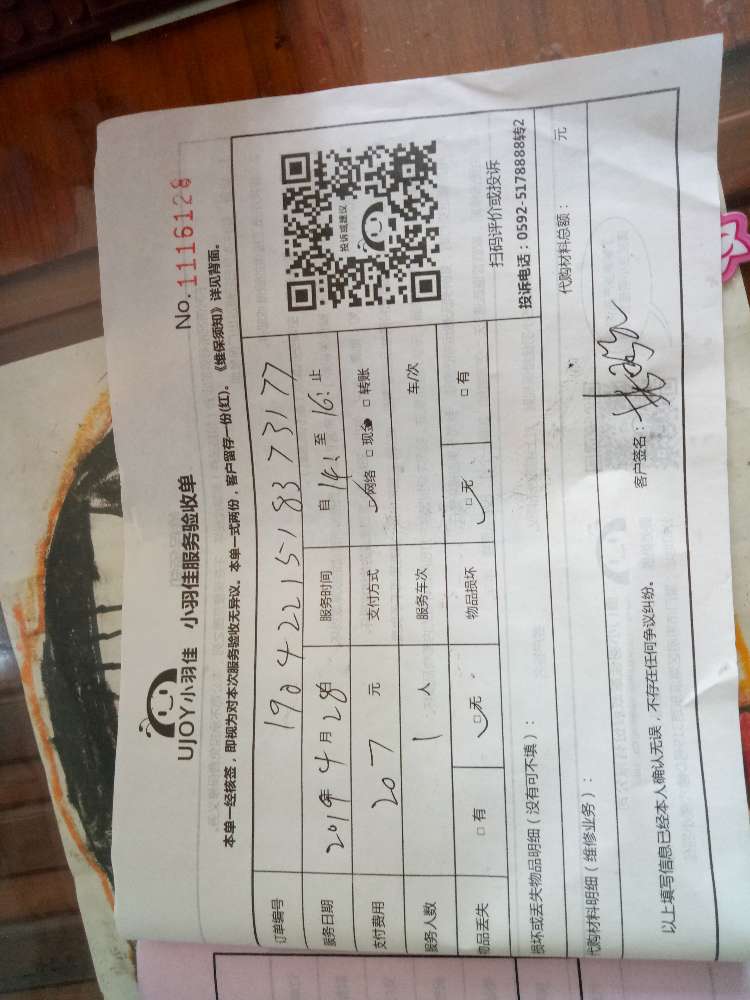 No.1116128
UJOY小羽佳 小羽佳服务验收单
本单一经核签，即视为对本次服务验收无异议。本单一式两份，客户留存一份(红)。《维保须知》详见背面。
订单编号 1904221518373177
服务日期 2019年4月28日 服务时间 自14:至16:止
支付费用 207元 支付方式 ☑网络 □现金 □转账
服务人数 1人 服务车次 车/次
物品丢失 □有 ☑无 物品损坏 ☑无 □有
投诉或建议
扫码评价或投诉
投诉电话：0592-5178888转2
损坏或丢失物品明细（没有可不填）：
代购材料明细（维修业务）： 代购材料总额： 元
以上填写信息已经本人确认无误，不存在任何争议纠纷。 客户签名：